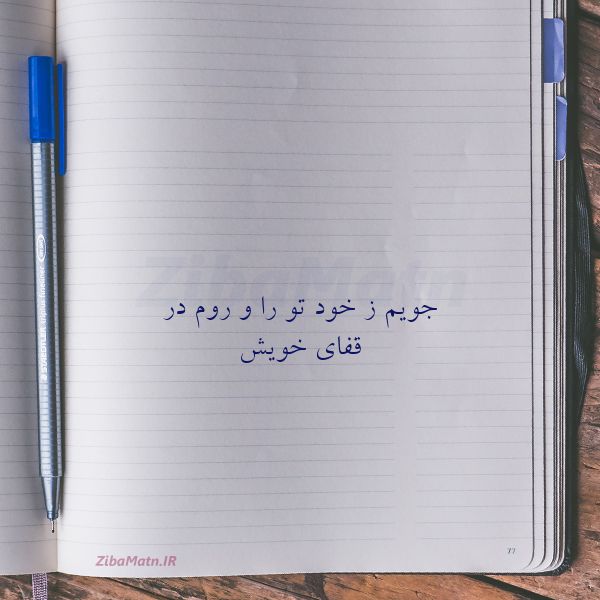 ZibaMatn
جویم ز خود تو را و روم در
قفای خویش
STAEDTLER triplus fineliner
ZibaMatn.IR
77